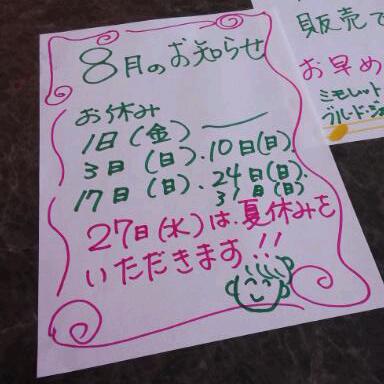 8月のお知らせ
お休み
1日(金)
3日(日).10日(日)
17日(日).24日(日).
31日(日)
27日(水)は、夏休みを
いただきます!!
販売で
お早め
ミモレット
ブルー・ド・ジ